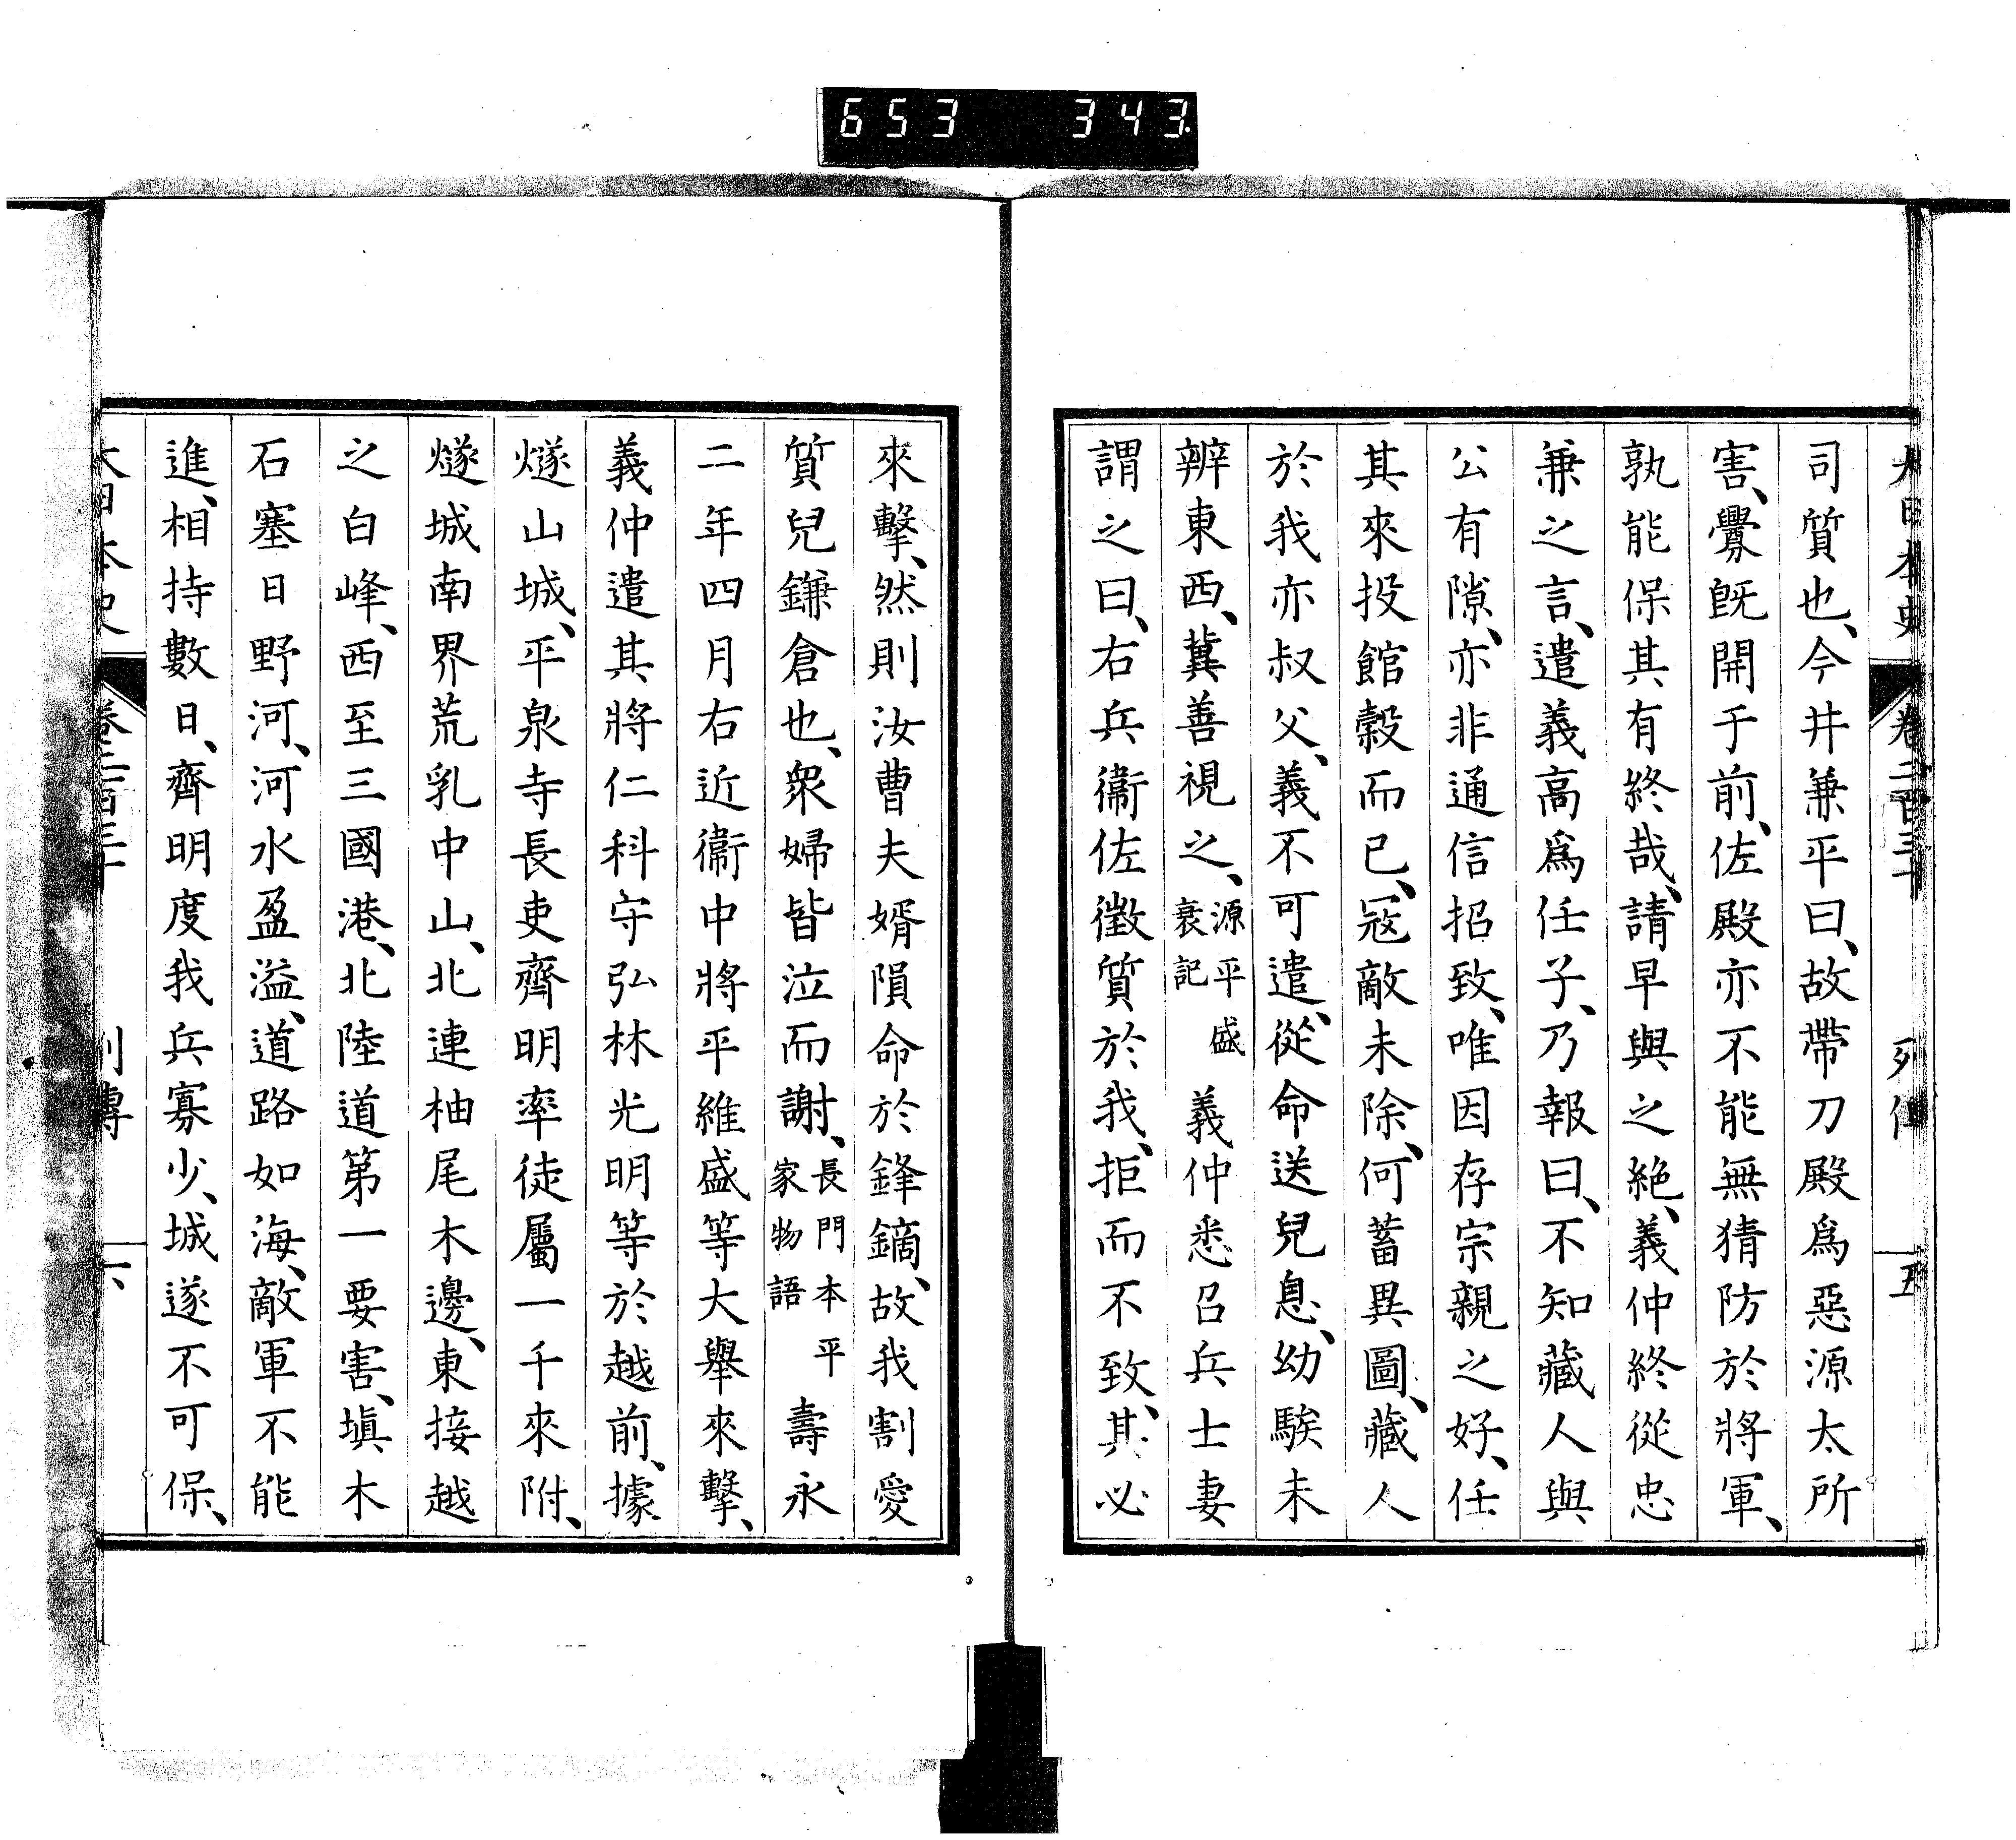 653 343
大日本史 卷二百三十 列傳 五
司質也、今井兼平曰、故帶刀殿爲惡源太所
害、釁既開于前、佐殿亦不能無猜防於將軍、
孰能保其有終哉、請早與之絶、義仲終從忠
兼之言、遣義高爲任子、乃報曰、不知藏人與
公有隙、亦非通信招致、唯因存宗親之好、任
其來投館穀而已、冦敵未除、何蓄異圖、藏人
於我亦叔父、義不可遣、從命送兒息、幼騃未
辨東西、冀善視之、源平盛衰記 義仲悉召兵士妻
謂之曰、右兵衞佐徵質於我、拒而不致、其必
來擊、然則汝曹夫婿隕命於鋒鏑、故我割愛
質兒鎌倉也、衆婦皆泣而謝、長門本平家物語 壽永
二年四月右近衞中將平維盛等大舉來擊、
義仲遣其將仁科守弘林光明等於越前、據
燧山城、平泉寺長吏齊明率徒屬一千來附、
燧城南界荒乳中山、北連柚尾木邊、東接越
之白峰、西至三國港、北陸道第一要害、塡木
石塞日野河、河水盈溢、道路如海、敵軍不能
進、相持數日、齊明度我兵寡少、城遂不可保、
大日本史 卷二百三十 列傳 六